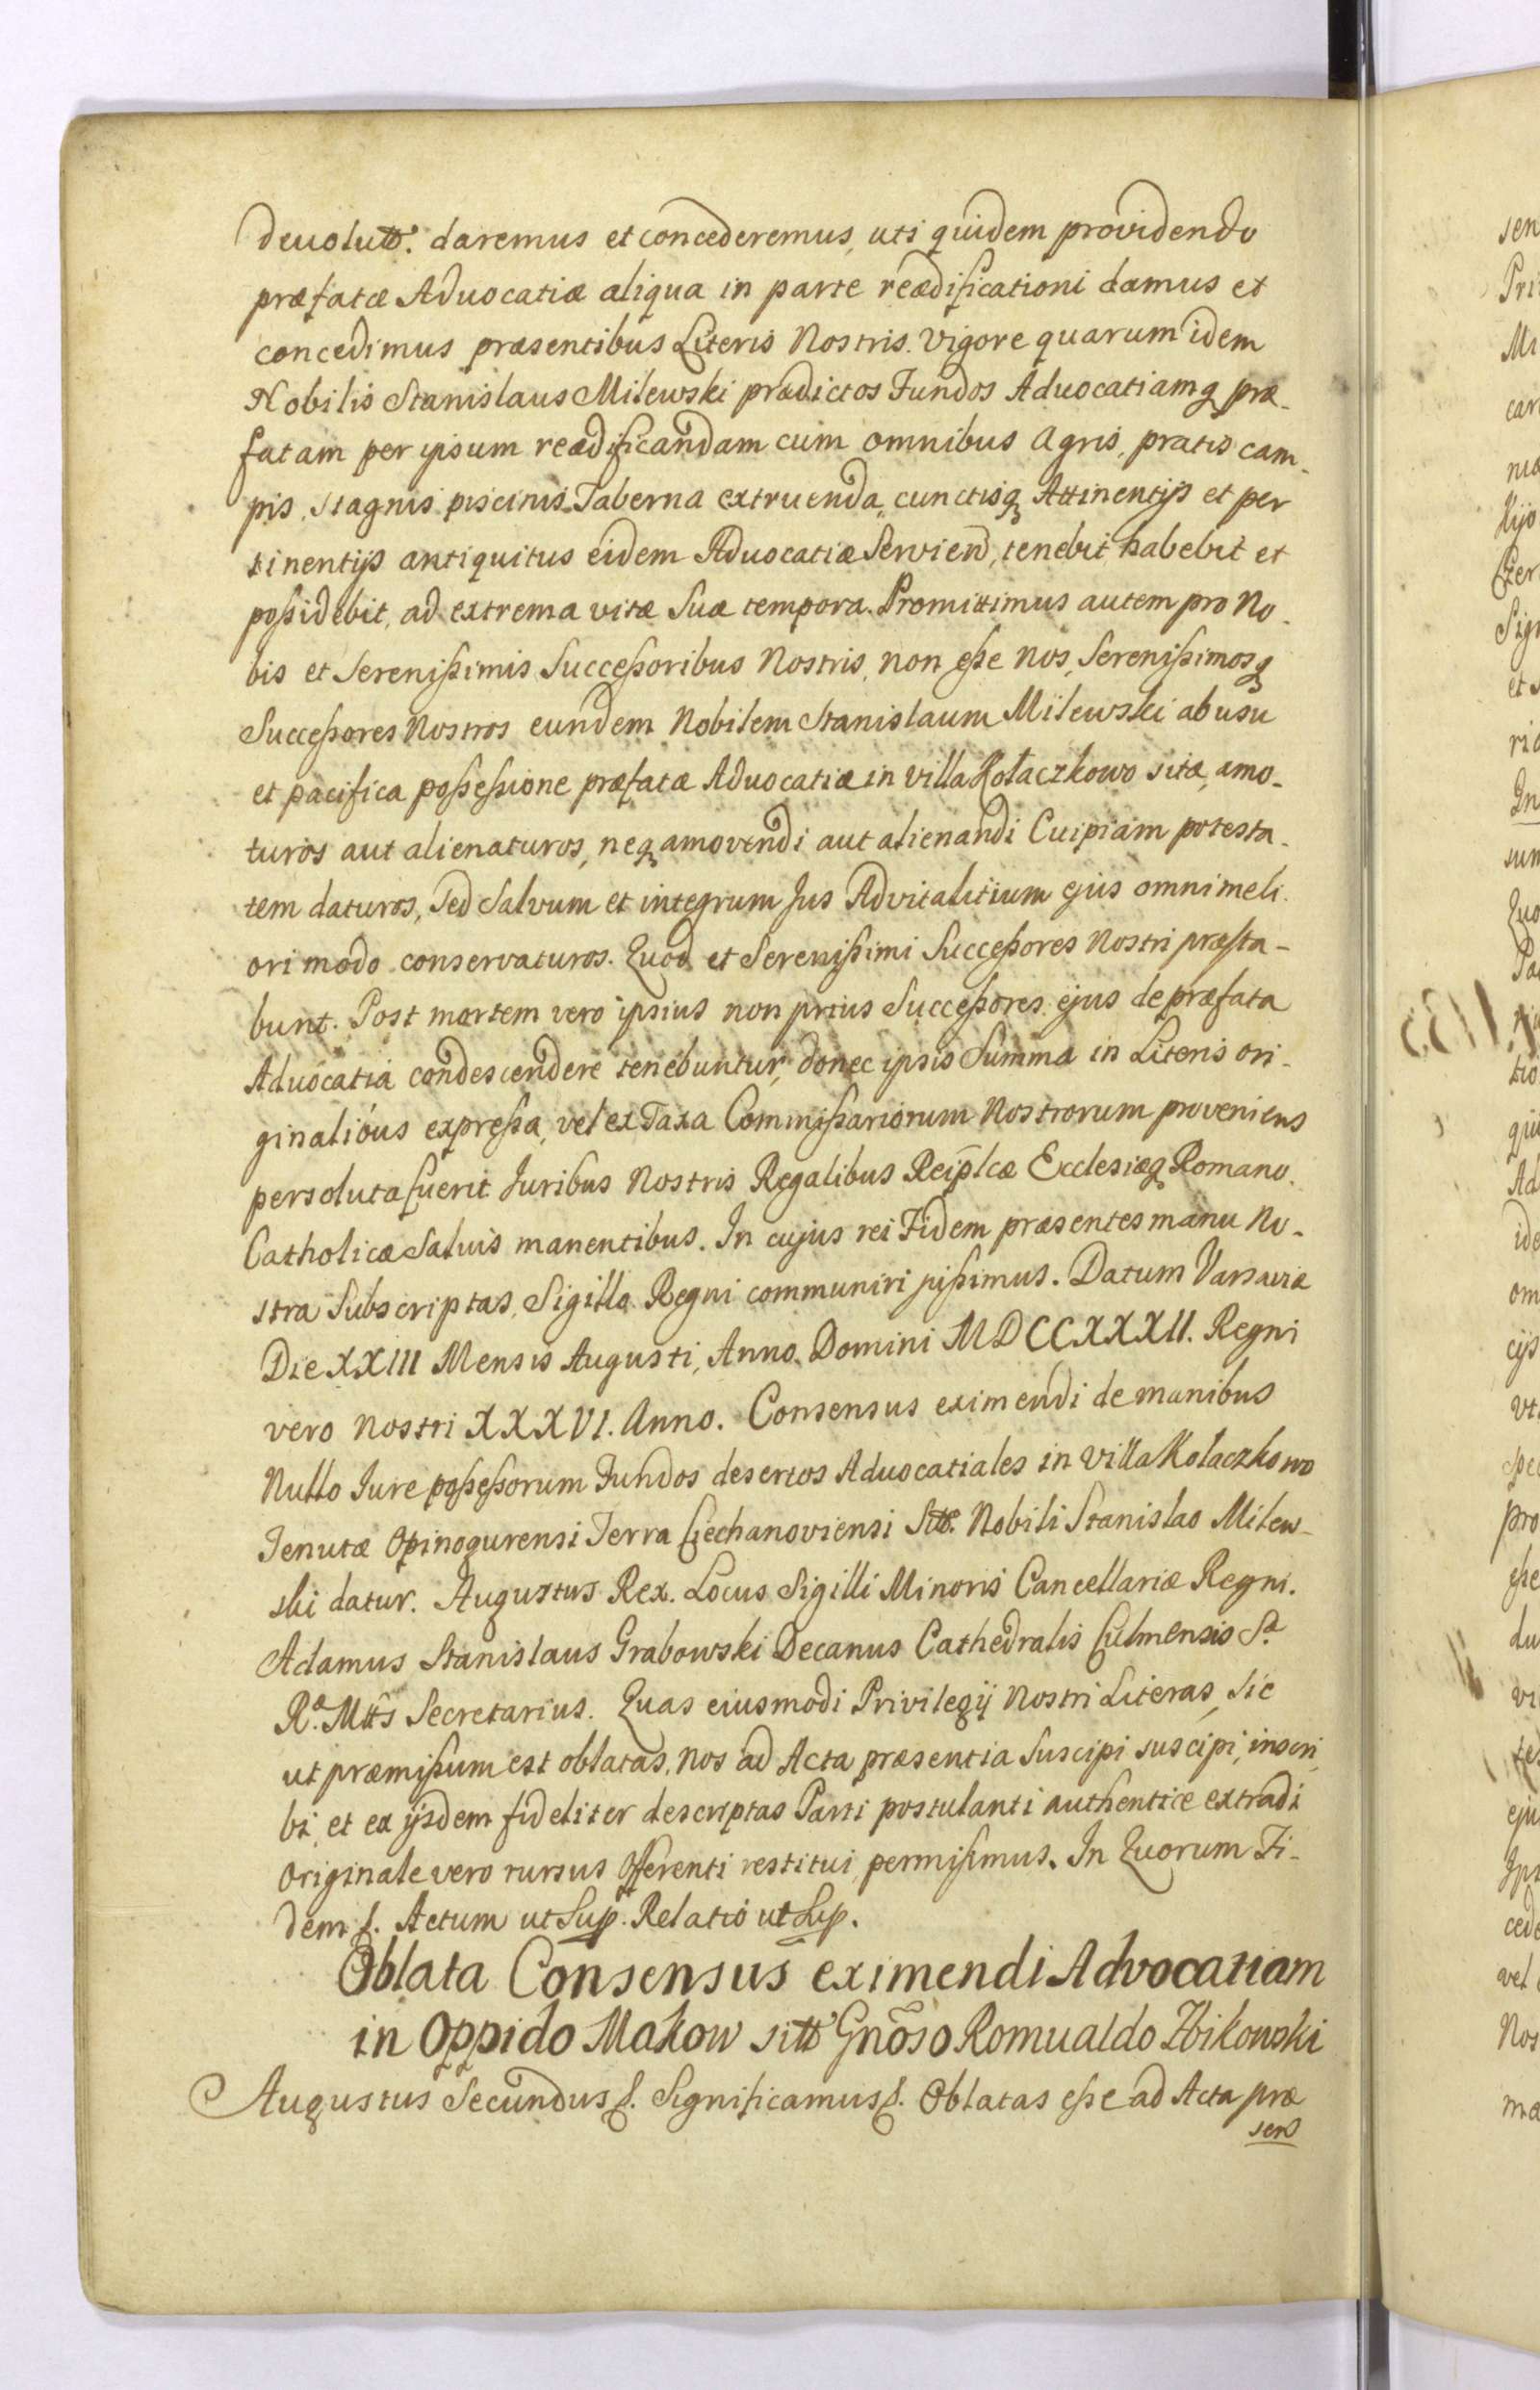 devolutt. daremus et concederemus, uti quidem providendo
præfatæ Advocatiæ aliqua in parte reædificationi damus et
concedimus præsentibus Literis Nostris. Vigore quarum idem
Nobilis Stanislaus Milewski prædictos Fundos Advocatiamq præ-
fatam per ipsum reædificandam cum omnibus Agris, pratis cam-
pis, Stagnis piscinis Taberna extruenda, cunctisq Attinentijs et per
tinentijs antiquitus eidem Advocatiæ Serviend, tenebit habebit et
possidebit, ad extrema vitæ Suæ tempora. Promittimus autem pro No-
bis et Serenissimis Successoribus Nostris, non esse Nos, Serenissimosq
Successores Nostros eundem Nobilem Stanislaum Milewski ab usu
et pacifica possessione præfatæ Advocatiæ in villa Kołaczkowo sitæ, amo-
turos aut alienaturos, neq amovendi aut alienandi Cuipiam potesta-
tem daturos, Sed Salvum et integrum Jus Advitalitium ejus omni meli-
ori modo conservaturos. Quod et Serenissimi Successores Nostri præsta-
bunt. Post mortem vero ipsius non prius Successores ejus de præfata
Advocatia condescendere tenebuntur, donec ipsis Summa in Literis ori-
ginalibus expressa, vel ex Taxa Commissariorum Nostrorum proveniens
persoluta fuerit Juribus Nostris Regalibus Reiplcæ Ecclesiæq Romano.
Catholicæ Salvis manentibus. In cujus rei Fidem præsentes manu No-
stra Subscriptas, Sigillo Regni communiri jussimus. Datum Varsaviæ
Die XXIII Mensis Augusti, Anno Domini MDCCXXXII. Regni
vero Nostri XXXVI. Anno. Consensus eximendi de manibus
Nullo Jure possessorum Fundos desertos Advocatiales in Villa Kołaczkowo
Tenutæ Opinogurensi Terra Ciechanoviensi Sitt. Nobili Stanislao Milew-
ski datur. Augustus Rex. Locus Sigilli Minoris Cancellariæ Regni.
Adamus Stanislaus Grabowski Decanus Cathedralis Culmensis Sæ
Ræ. Mttis Secretarius. Quas eiusmodi Privilegij Nostri Literas, Sic
ut præmissum est oblatas, Nos ad Acta præsentia Suscipi suscipi, inscri
bi, et ex ijsdem fideliter descriptas Parti postulanti authentice extradi
Originale vero rursus offerenti restitui permisimus. In Quorum Fi-
dem f. Actum ut Sup. Relatio ut Sup.
Oblata Consensus eximendi Advocatiam
in Oppido Makow sitt Gnoso Romualdo Zbikowski
Augustus Secundus f. Significamus f. Oblatas esse ad Acta præ
sens